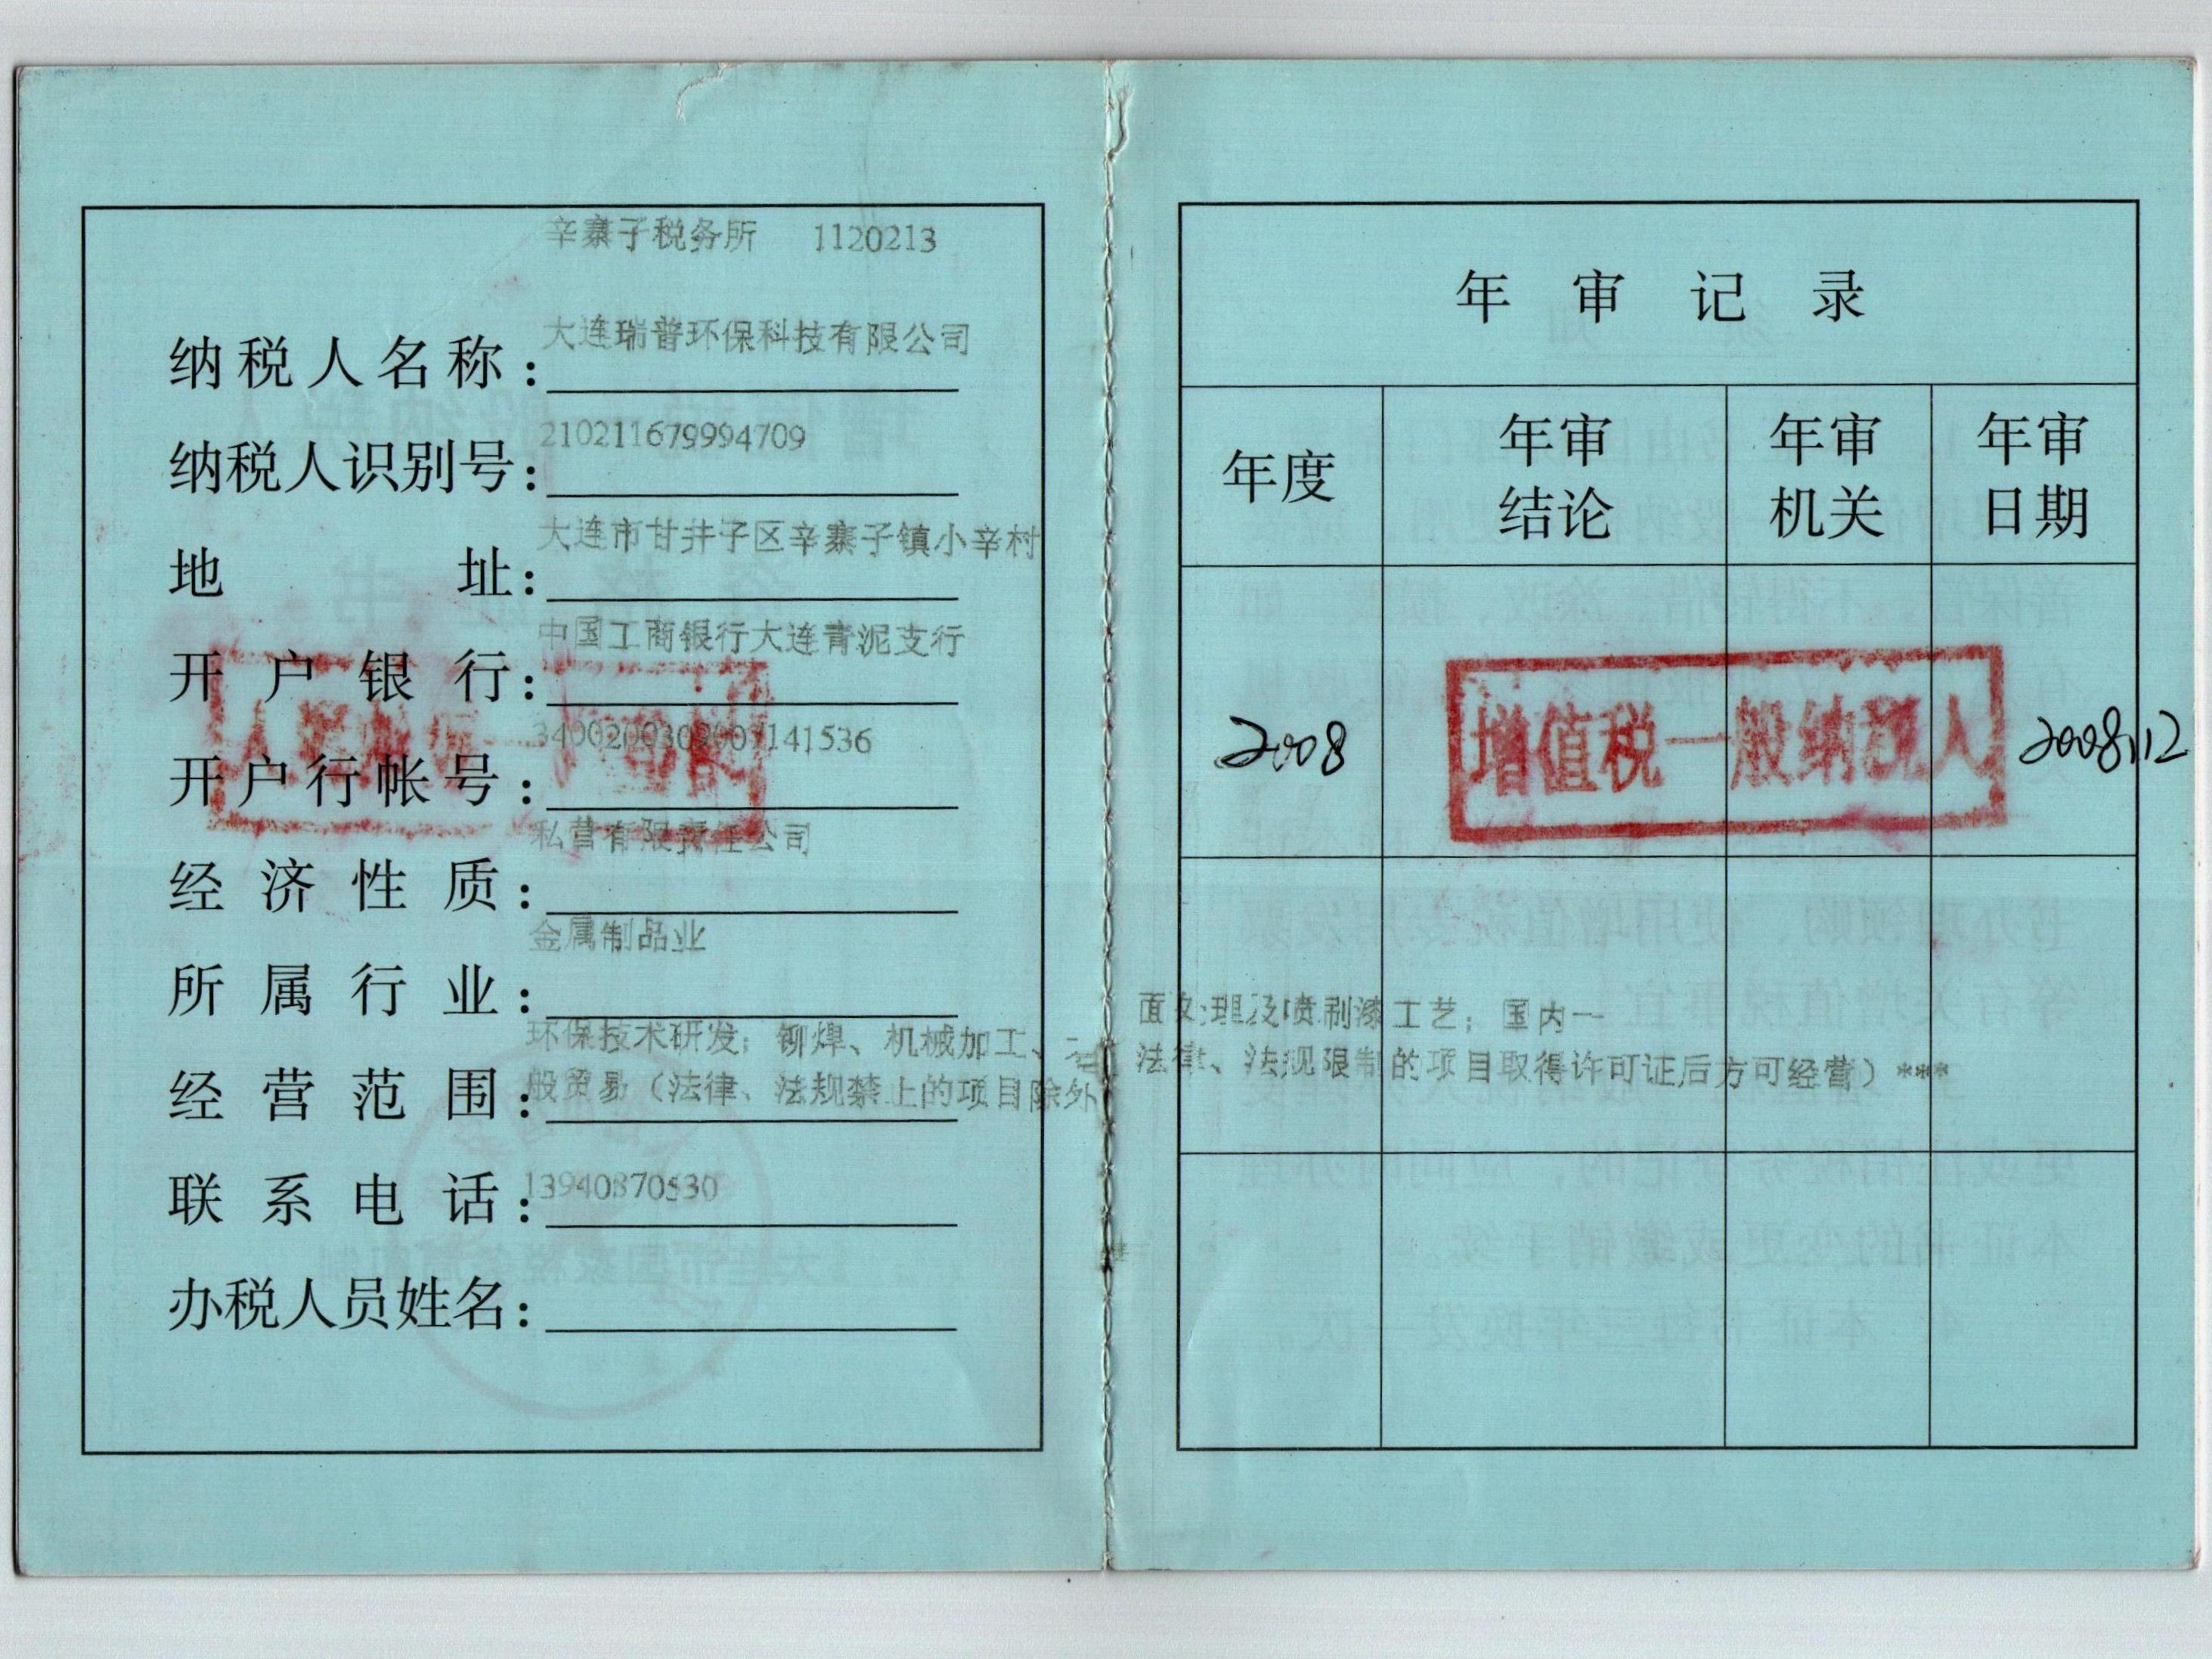 辛寨子税务所 1120213
纳税人名称: 大连瑞普环保科技有限公司
纳税人识别号: 210211679994709
地址: 大连市甘井子区辛寨子镇小辛村
开户银行: 中国工商银行大连青泥支行
开户行帐号: 3400200309007141536
经济性质: 私营有限责任公司
所属行业: 金属制品业
经营范围: 环保技术研发; 铆焊、机械加工、
般贸易(法律、法规禁止的项目除外
联系电话: 13940870530
办税人员姓名:
年审记录
年度
年审结论
年审机关
年审日期
2008
增值税一般纳税人
2008.12
面处理及喷刷漆工艺; 国内一
法律、法规限制的项目取得许可证后方可经营)***